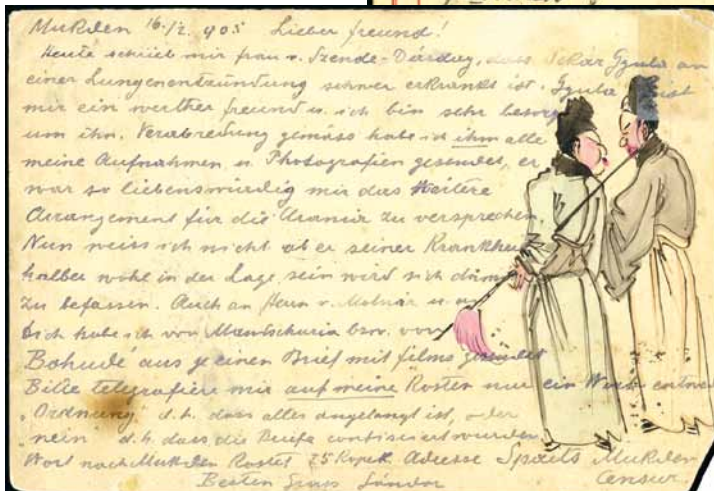 Mukden 16./2. 905 Lieber freund!
Heute schrieb mir frau v. Szende-Dárday, dass Gyula an
einer Lungenentzündung schwer erkrankt ist. Gyula ist
mir ein werther freund u. ich bin sehr besorg
um ihn. Verabredung gemäss habe ich ihm alle
meine Aufnahmen u. Photografien gesendet, er
war so liebenswürdig mir das Weitere
Arangement für die Urania zu versprechen.
Nun weiss ich nicht ob er seiner Krankheit
halber wohl in der Lage sein wird sich damit
zu befassen. Auch an Herrn v. Molnár u. an
Dich habe ich von Mantschuria bzw. von
Bohudé aus je einen Brief mit films gesendet
Bitte telegrafiere mir auf meine Kosten nur ein Wort entwe
„Ordnung" d.h. dass alles angelangt ist, oder
„nein" d.h. dass die Briefe confisciert wurden.
Wort nach Mukden Kostet 75 Kopek. Adresse Spaits Mukden
Besten Gruss Sándor Censur.